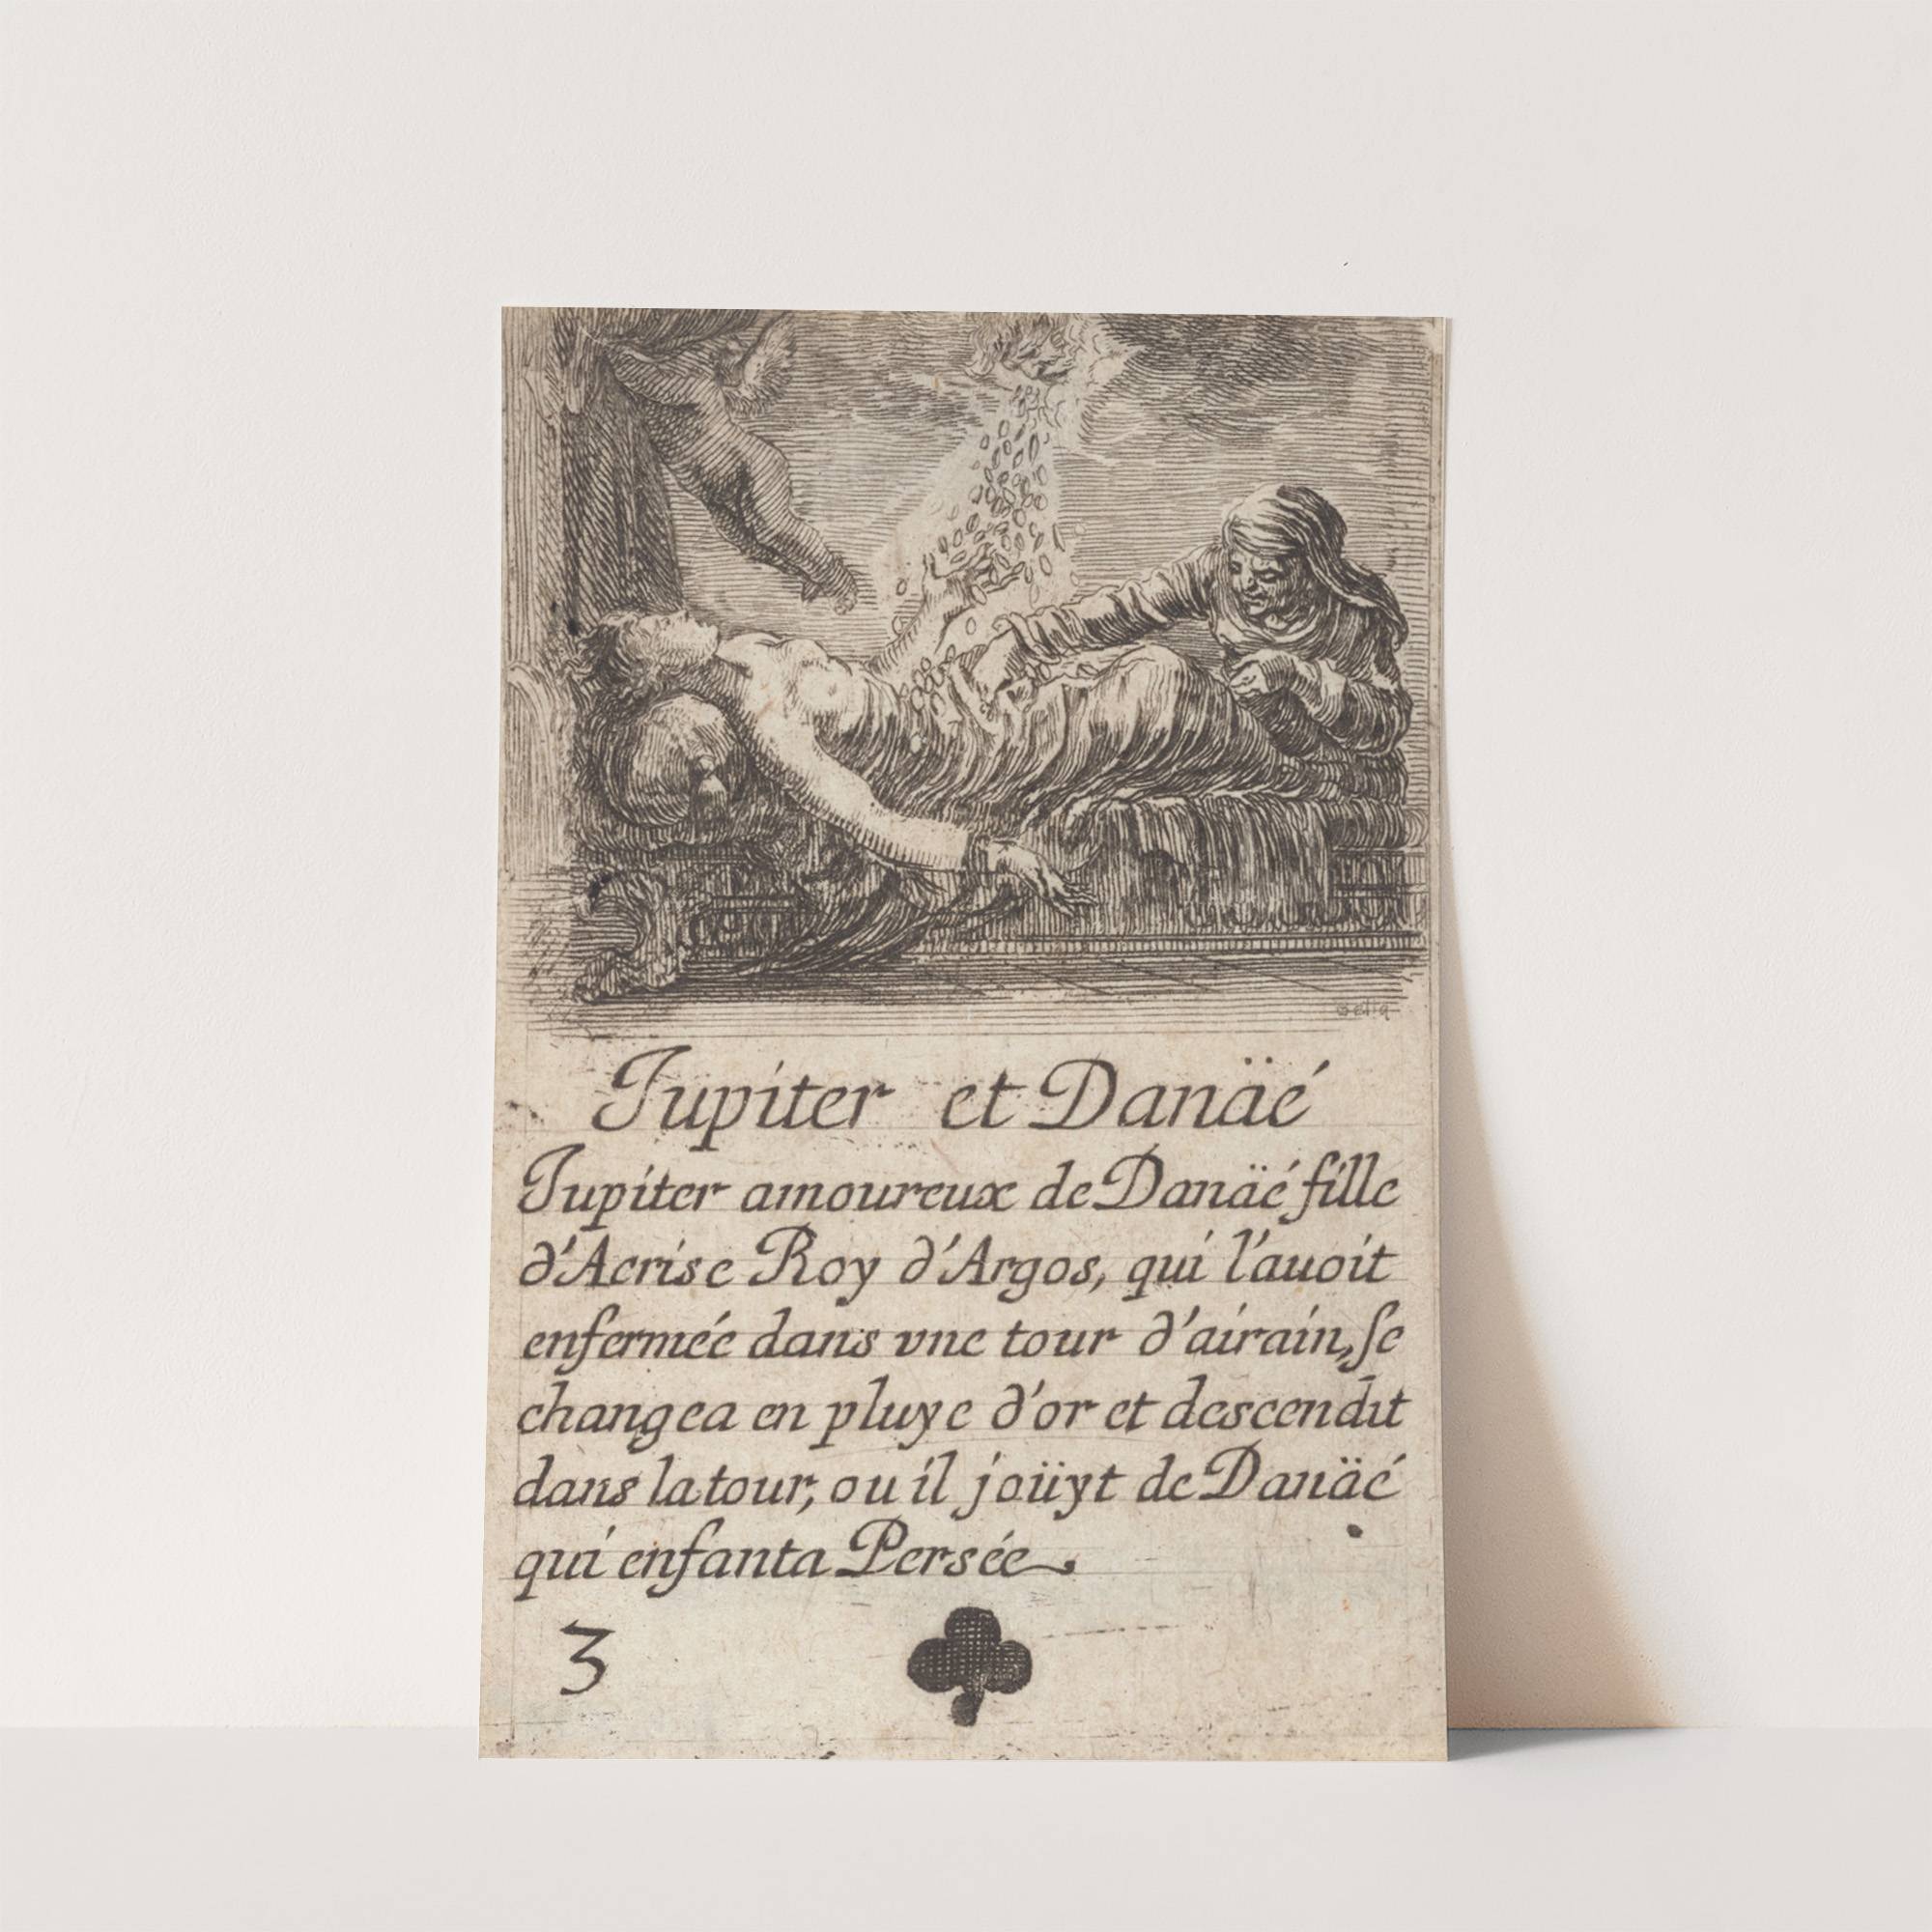 Iupiter et Danäé
Iupiter amoureux de Danäé fille
d'Acrise Roy d'Argos, qui l'auoit
enfermée dans vne tour d'airain, ſe
changea en pluye d'or et descendit
dans la tour, ou il joüyt de Danäé
qui enfanta Persée
3